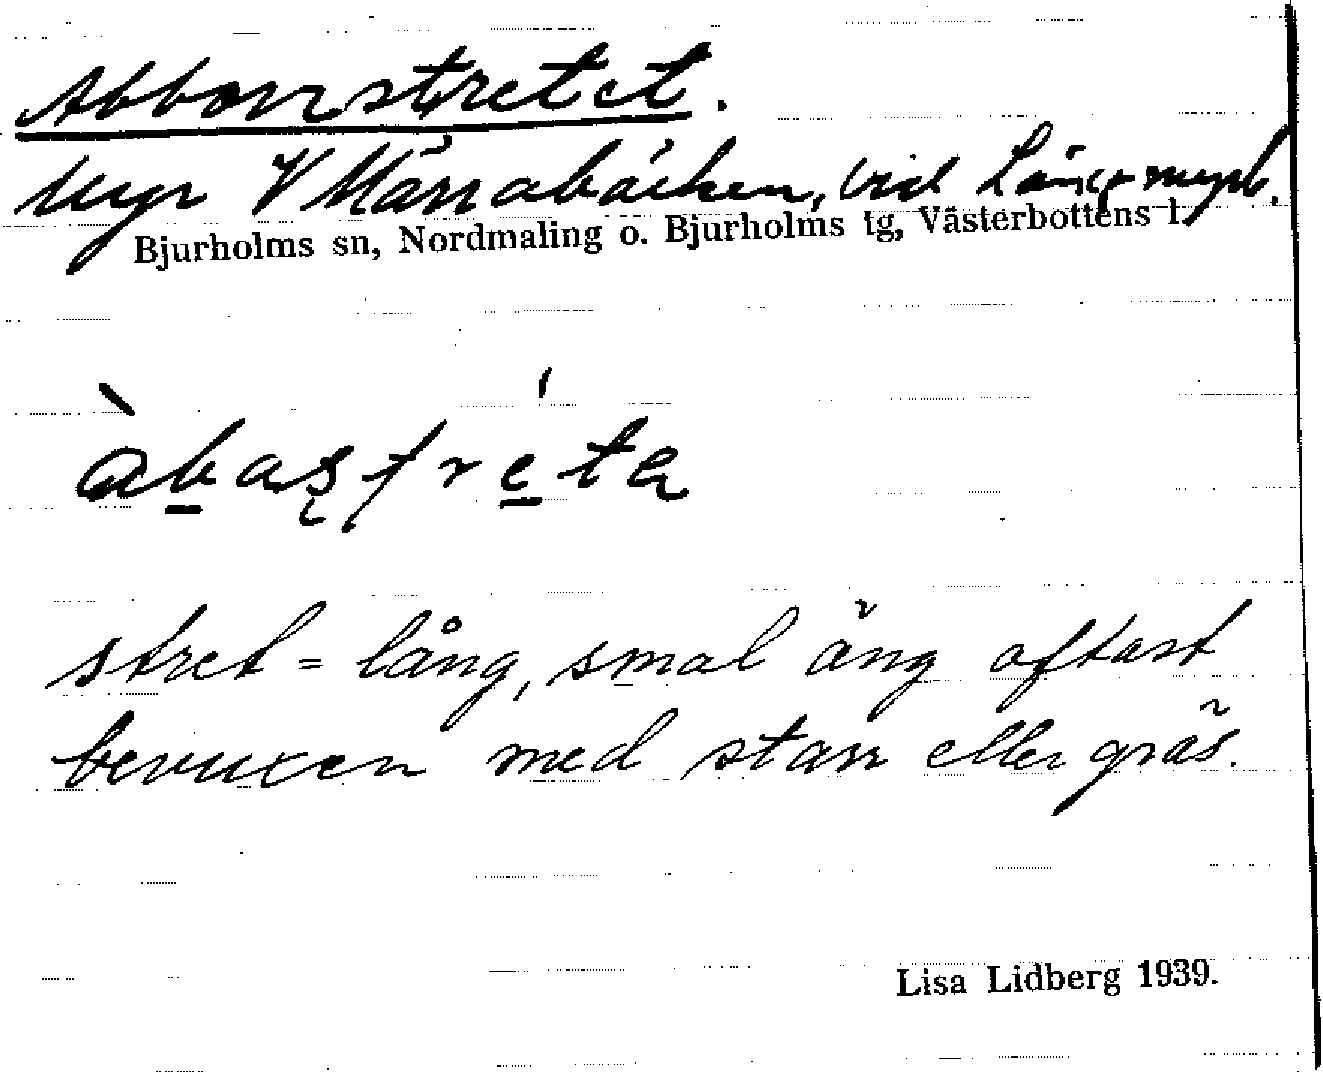 Abborrstretet.
myr V Märrabäcken, vid Långmyrb.
Bjurholms sn, Nordmaling o. Bjurholms tg, Västerbottens l.
àbaʂtréta
stret = lång, smal äng oftast
bevuxen med starr eller gräs.
Lisa Lidberg 1939.